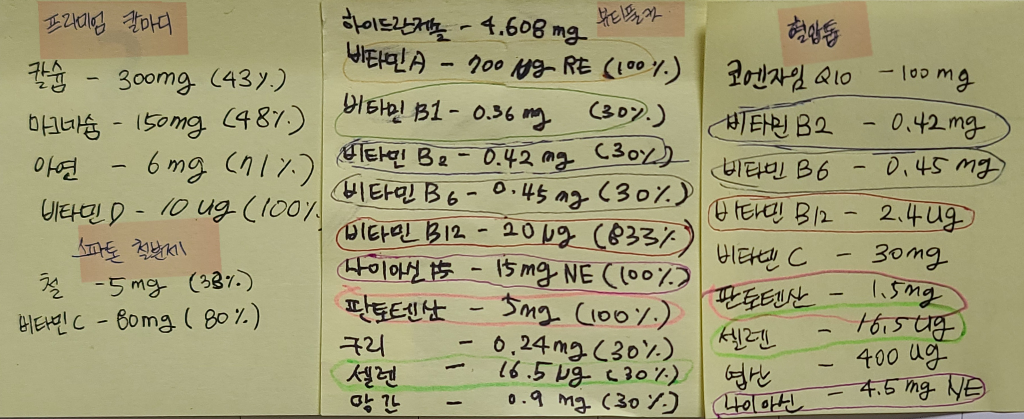 프리미엄 칼마디
칼슘 - 300mg (43%)
마그네슘 - 150mg (48%)
아연 - 6mg (71%)
비타민 D - 10 ug (100%
스파톤 철분제
철 - 5mg (38%)
비타민 C - 80mg (80%)
뷰티플러
하이드란제놀 - 4.608mg
비타민 A - 700 μg RE (100%)
비타민 B1 - 0.36 mg (30%)
비타민 B2 - 0.42 mg (30%)
비타민 B6 - 0.45 mg (30%)
비타민 B12 - 20 μg (833%)
나이아신 - 15 mg NE (100%)
판토텐산 - 5mg (100%)
구리 - 0.24 mg (30%)
셀렌 - 16.5 μg (30%)
망간 - 0.9 mg (30%)
혈압
코엔자임 Q10 - 100 mg
비타민 B2 - 0.42 mg
비타민 B6 - 0.45 mg
비타민 B12 - 2.4 ug
비타민 C - 30 mg
판토텐산 - 1.5 mg
셀렌 - 16.5 ug
엽산 - 400 ug
나이아신 - 4.5 mg NE